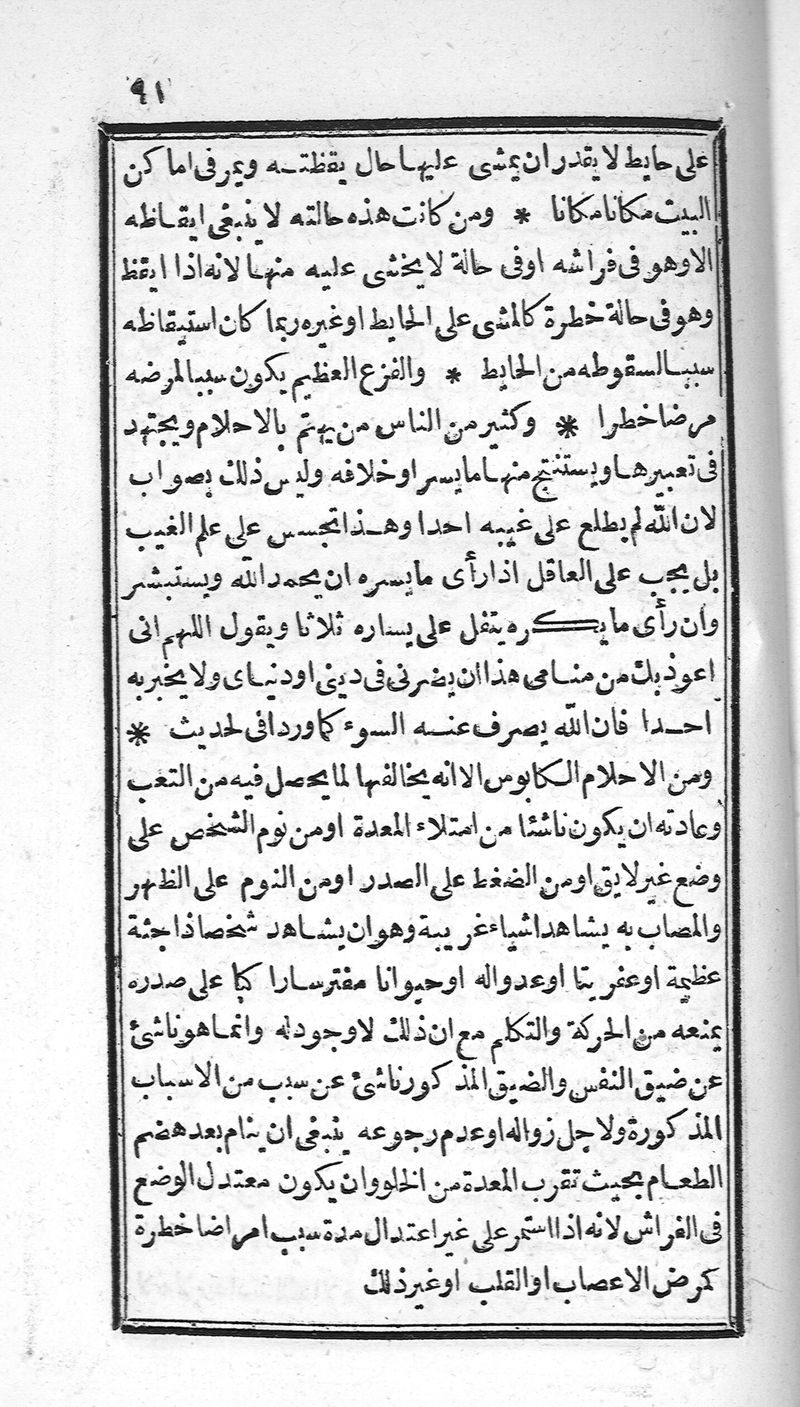 ٩١
على حايط لا يقدر ان يمشى عليها حال يقظته ويمر فى اماكن
البيت مكانا مكانا * ومن كانت هذه حالته لا ينبغى ايقاظه
الا وهو فى فراشه او فى حالة لا يخشى عليه منها لانه اذا ايقظ
وهو فى حالة خطرة كالمشى على الحايط او غيره ربما كان استيقاظه
سببا لسقوطه من الحايط * والفزع العظيم يكون سببا لمرضه
مرضا خطرا * وكثير من الناس من يهتم بالاحلام ويجتهد
فى تعبيرها ويستنتج منها ما يسر او خلافه وليس ذلك بصواب
لان الله لم يطلع على غيبه احدا وهذا تجسس على علم الغيب
بل يجب على العاقل اذا رأى ما يسره ان يحمد الله ويستبشر
وان رأى ما يكره يتفل على يساره ثلاثا ويقول اللهم انى
اعوذ بك من منامى هذا ان يضرنى فى دينى او دنياى ولا يخبر به
احدا فان الله يصرف عنه السوء كما ورد فى لحديث *
ومن الاحلام الكابوس الا انه يخالفها لما يحصل فيه من التعب
وعادته ان يكون ناشئا من امتلاء المعدة او من نوم الشخص على
وضع غير لايق او من الضغط على الصدر او من النوم على الظهر
والمصاب به يشاهد اشياء غريبة وهو ان يشاهد شخصا ذا جثة
عظيمة او عفريتا او عدوا له او حيوانا مفترسا راكبا على صدره
يمنعه من الحركة والتكلم مع ان ذلك لا وجود له وانما هو ناشئ
عن ضيق النفس والضيق المذكور ناشئ عن سبب من الاسباب
المذكورة ولاجل زواله او عدم رجوعه ينبغى ان ينام بعد هضم
الطعام بحيث تقرب المعدة من الخلو وان يكون معتدل الوضع
فى الفراش لانه اذا استمر على غير اعتدال مدة سبب امراضا خطرة
كمرض الاعصاب او القلب او غير ذلك